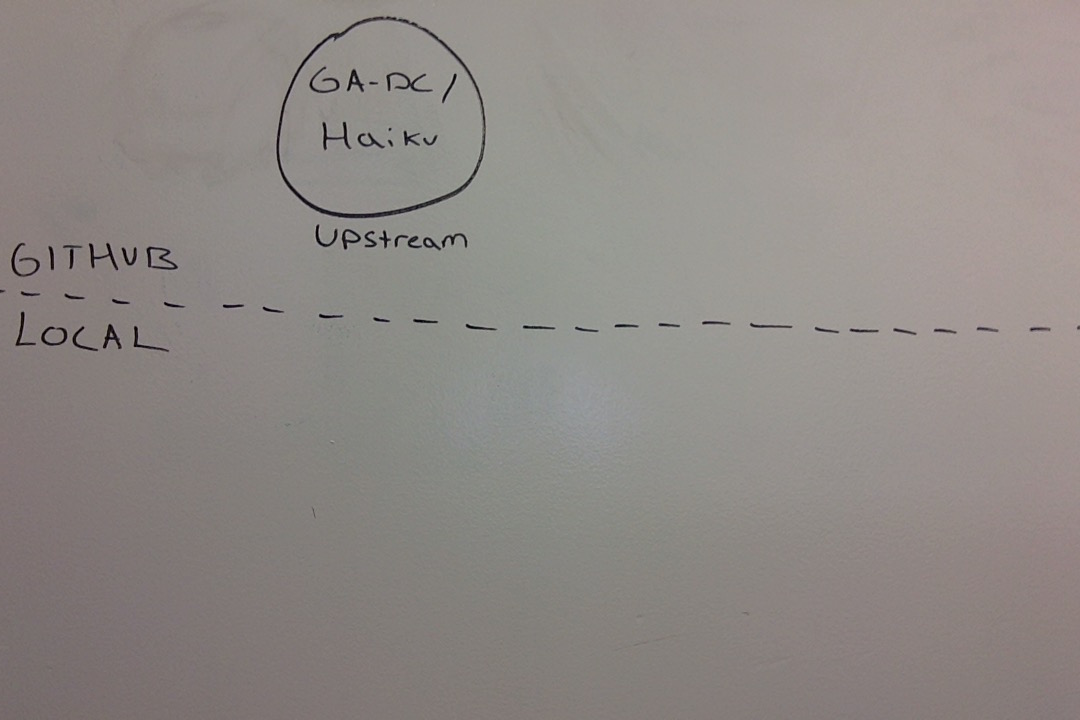 GA-DC/
Haiku
Upstream
GITHUB
LOCAL